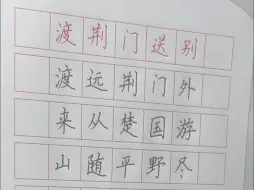 渡荆门送别
渡远荆门外
来从楚国游
山随平野尽